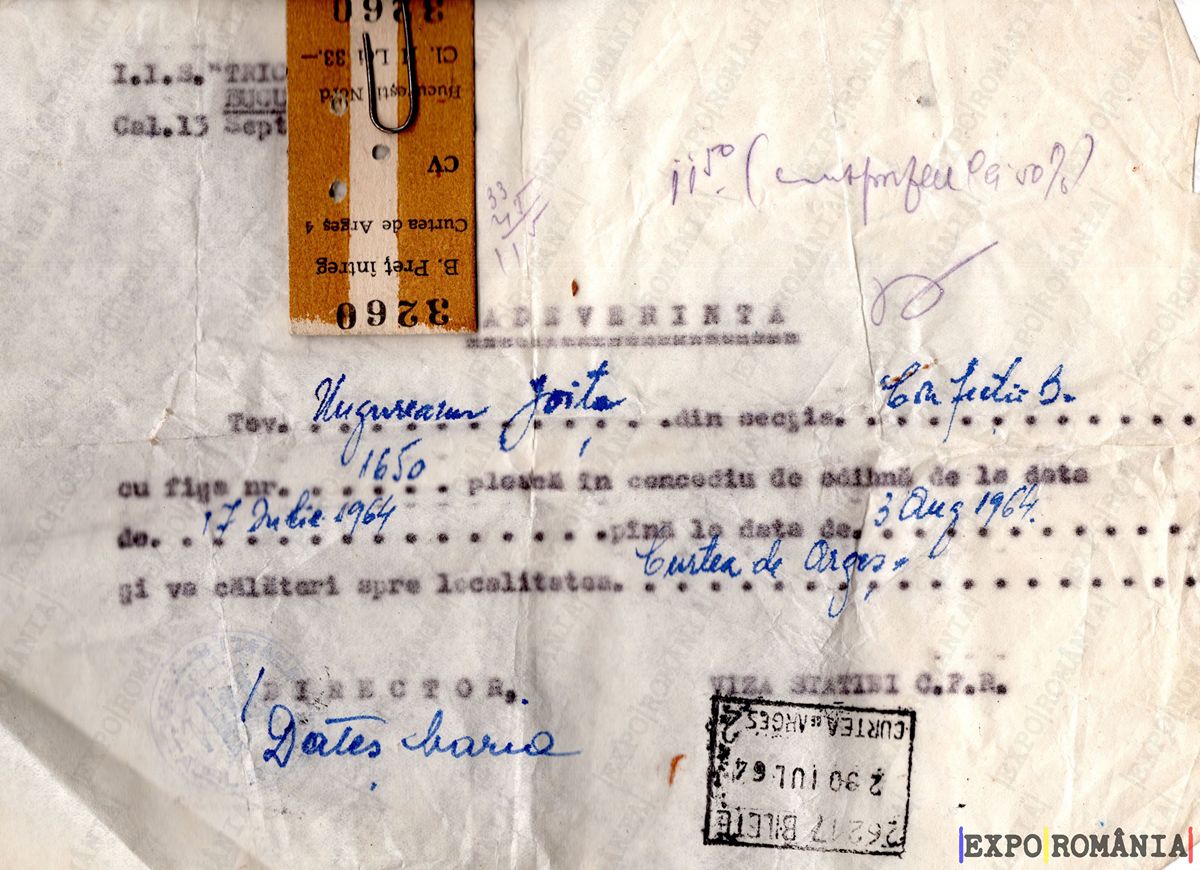 I.I.S. "TRIC
BUCU
Cal.13 Sept
3260
Cl. II Lei 33.—
București Nord
CV
Curtea de Argeș 4
B. Preț întreg
3260
33
11
11 50
50%)
ADEVERINTA
Tov. Ungureanu Joița din secția. Confecții 3.
cu fișa nr. 1650 pleacă în concediu de odihnă de la data
de. 17 Iulie 1964 pînă la data de. 3 Aug 1964.
și va călători spre localitatea. Curtea de Argeș.
DIRECTOR,
VIZA STAȚIEI C.F.R.
Maria
CURTEA DE ARGEȘ 2
2 30 IUL 64
26217 BILETE
EXPO ROMÂNIA